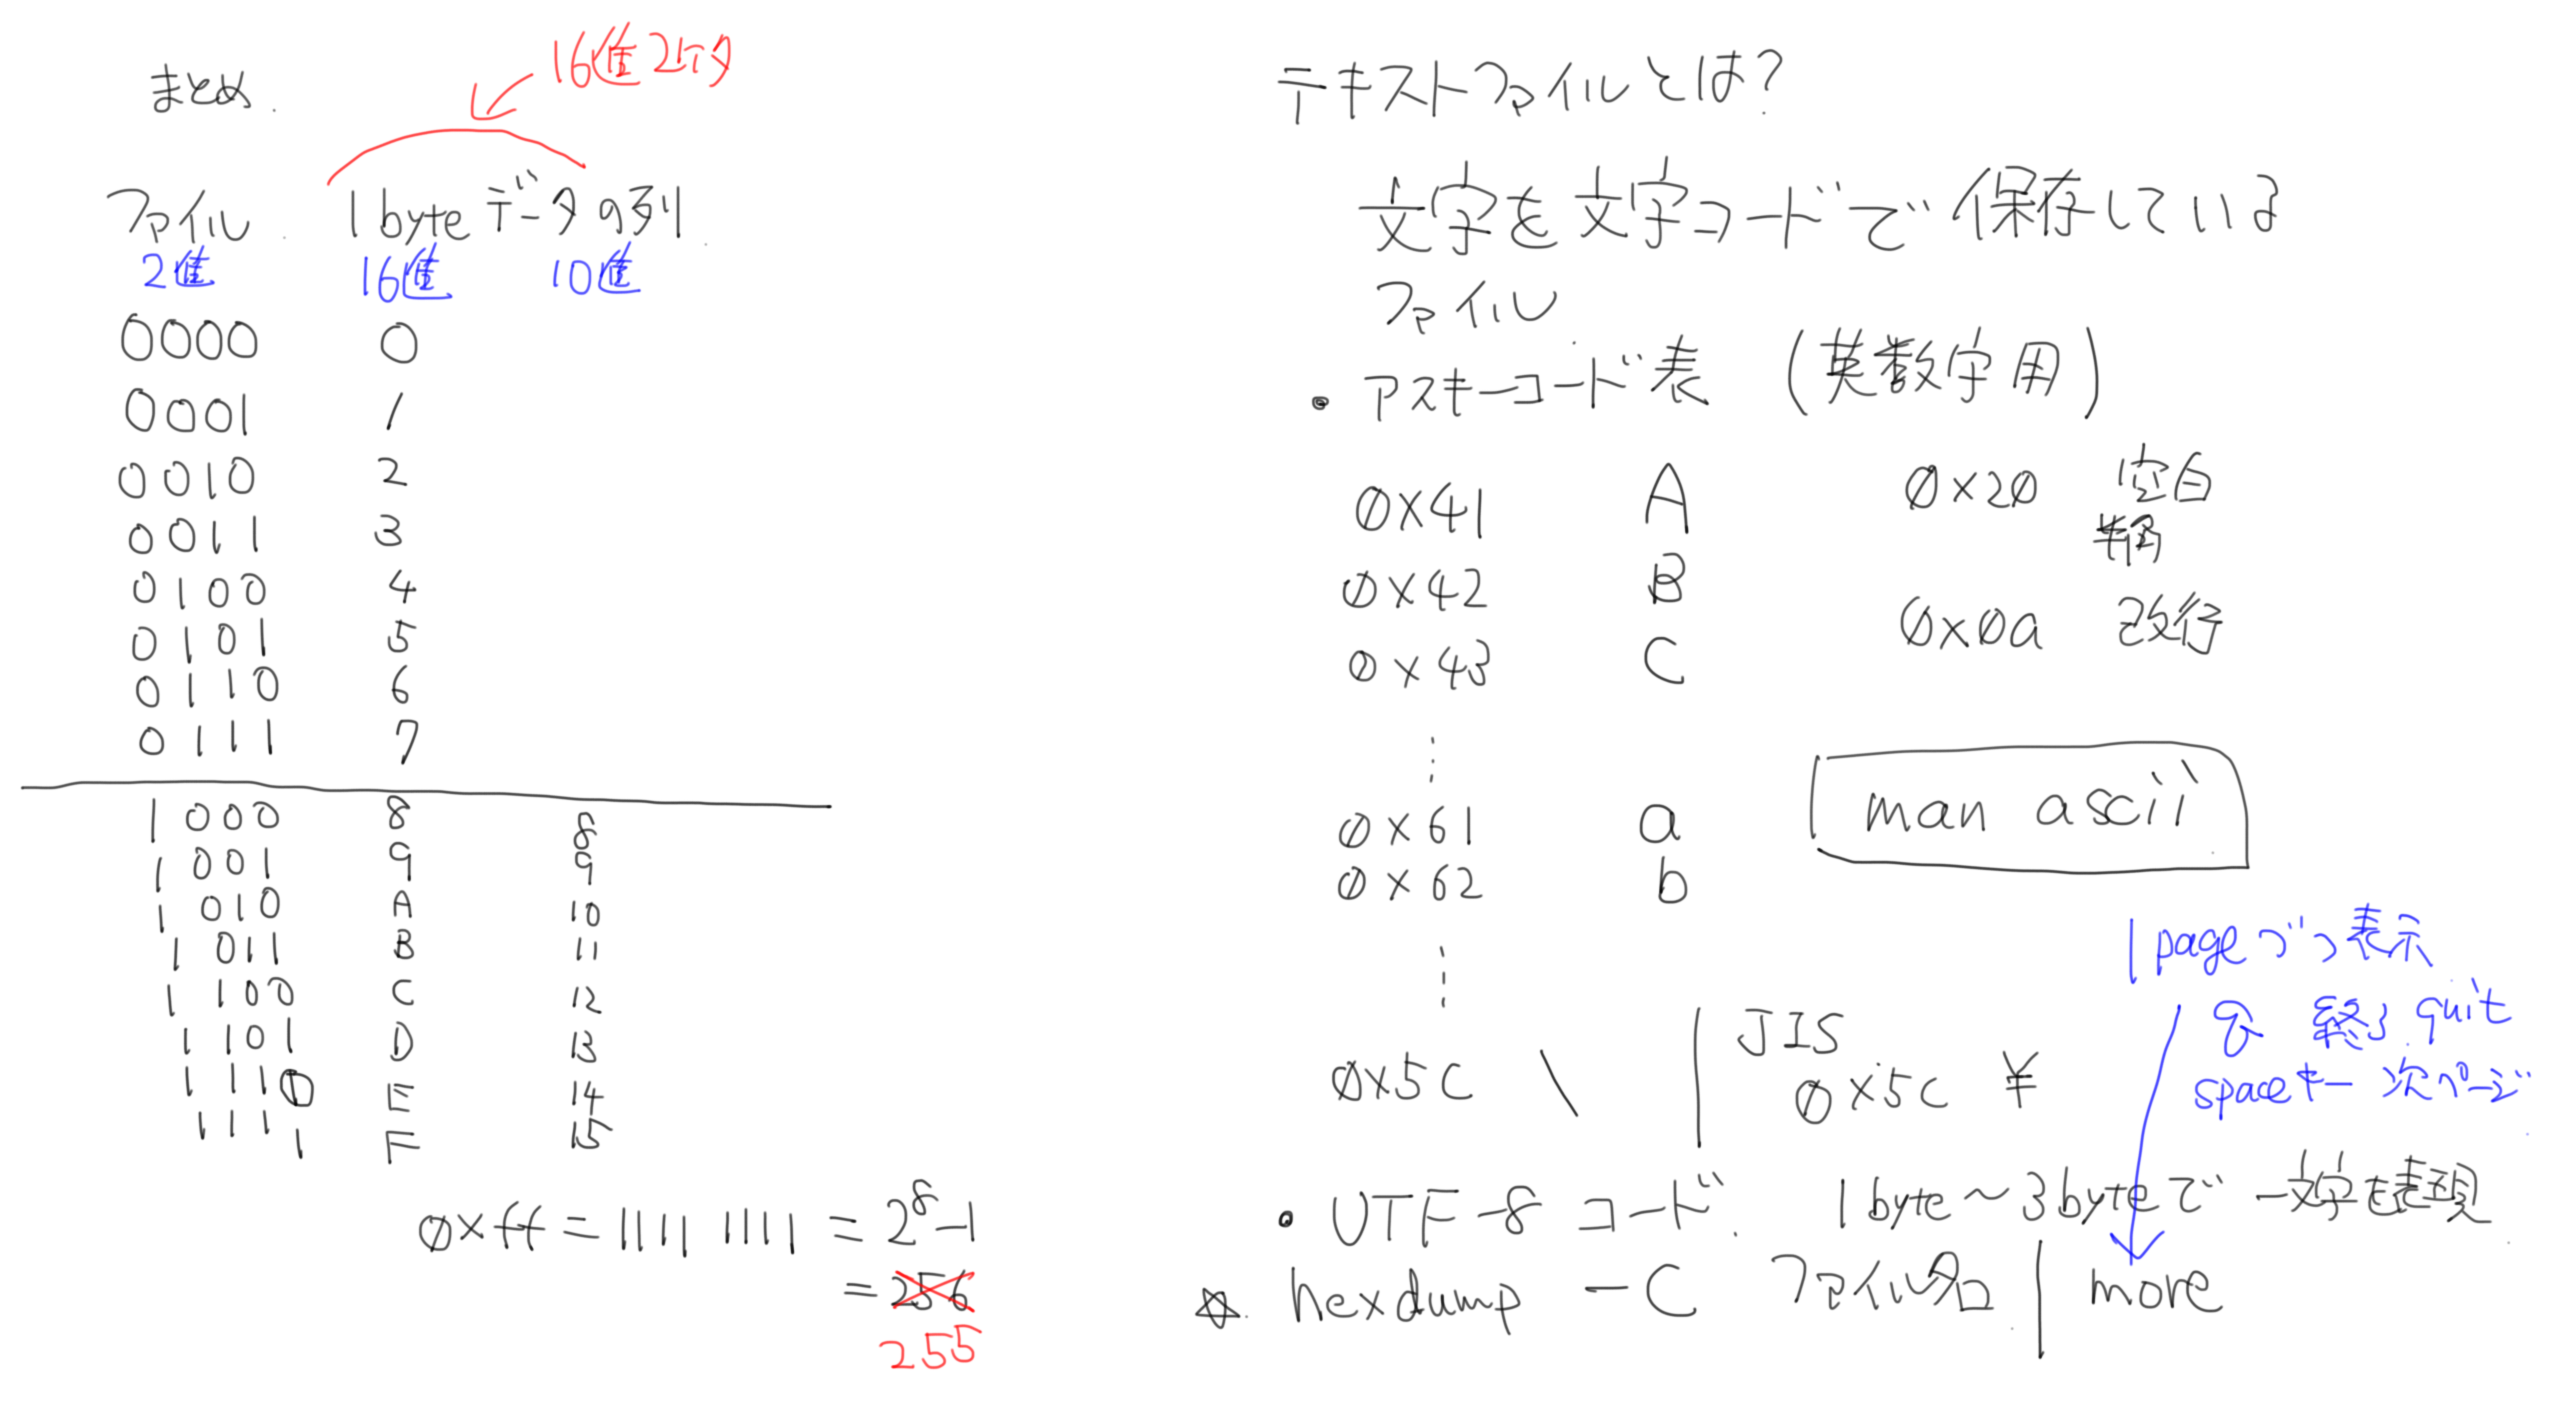 まとめ
16進2ケタ
ファイル 1byteデータの列
2進 16進 10進
0000 0
0001 1
0010 2
0011 3
0100 4
0101 5
0110 6
0111 7
1000 8 8
1001 9 9
1010 A 10
1011 B 11
1100 C 12
1101 D 13
1110 E 14
1111 F 15
0xff = 1111 1111 = 2⁸-1
= 256
255
テキストファイルとは?
文字を文字コードで保存している
ファイル
• アスキーコード表 (英数字用)
0x41 A 0x20 空白
半角
0x42 B
0x0a 改行
0x43 C
⋮
man ascii
0x61 a
0x62 b
⋮
1pageづつ表示
q 終了 quit
spaceキー 次ページ
0x5C \ | JIS
0x5C ¥
• UTF-8 コード 1byte〜3byteで一文字を表現
☆ hexdump -C ファイル名 | more